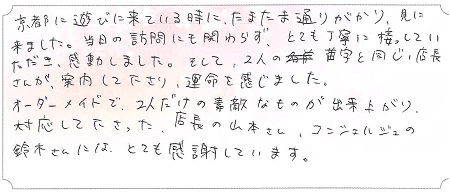 京都に遊びに来ている時に、たまたま通りがかり、見に
来ました。当日の訪問にも関わらず、とても丁寧に接してい
ただき、感動しました。そして、2人の 苗字と同じ店長
さんが、案内して下さり、運命を感じました。
オーダーメイドで、2人だけの素敵なものが出来上がり、
対応して下さった、店長の山本さん、コンシェルジュの
鈴木さんには、とても感謝しています。